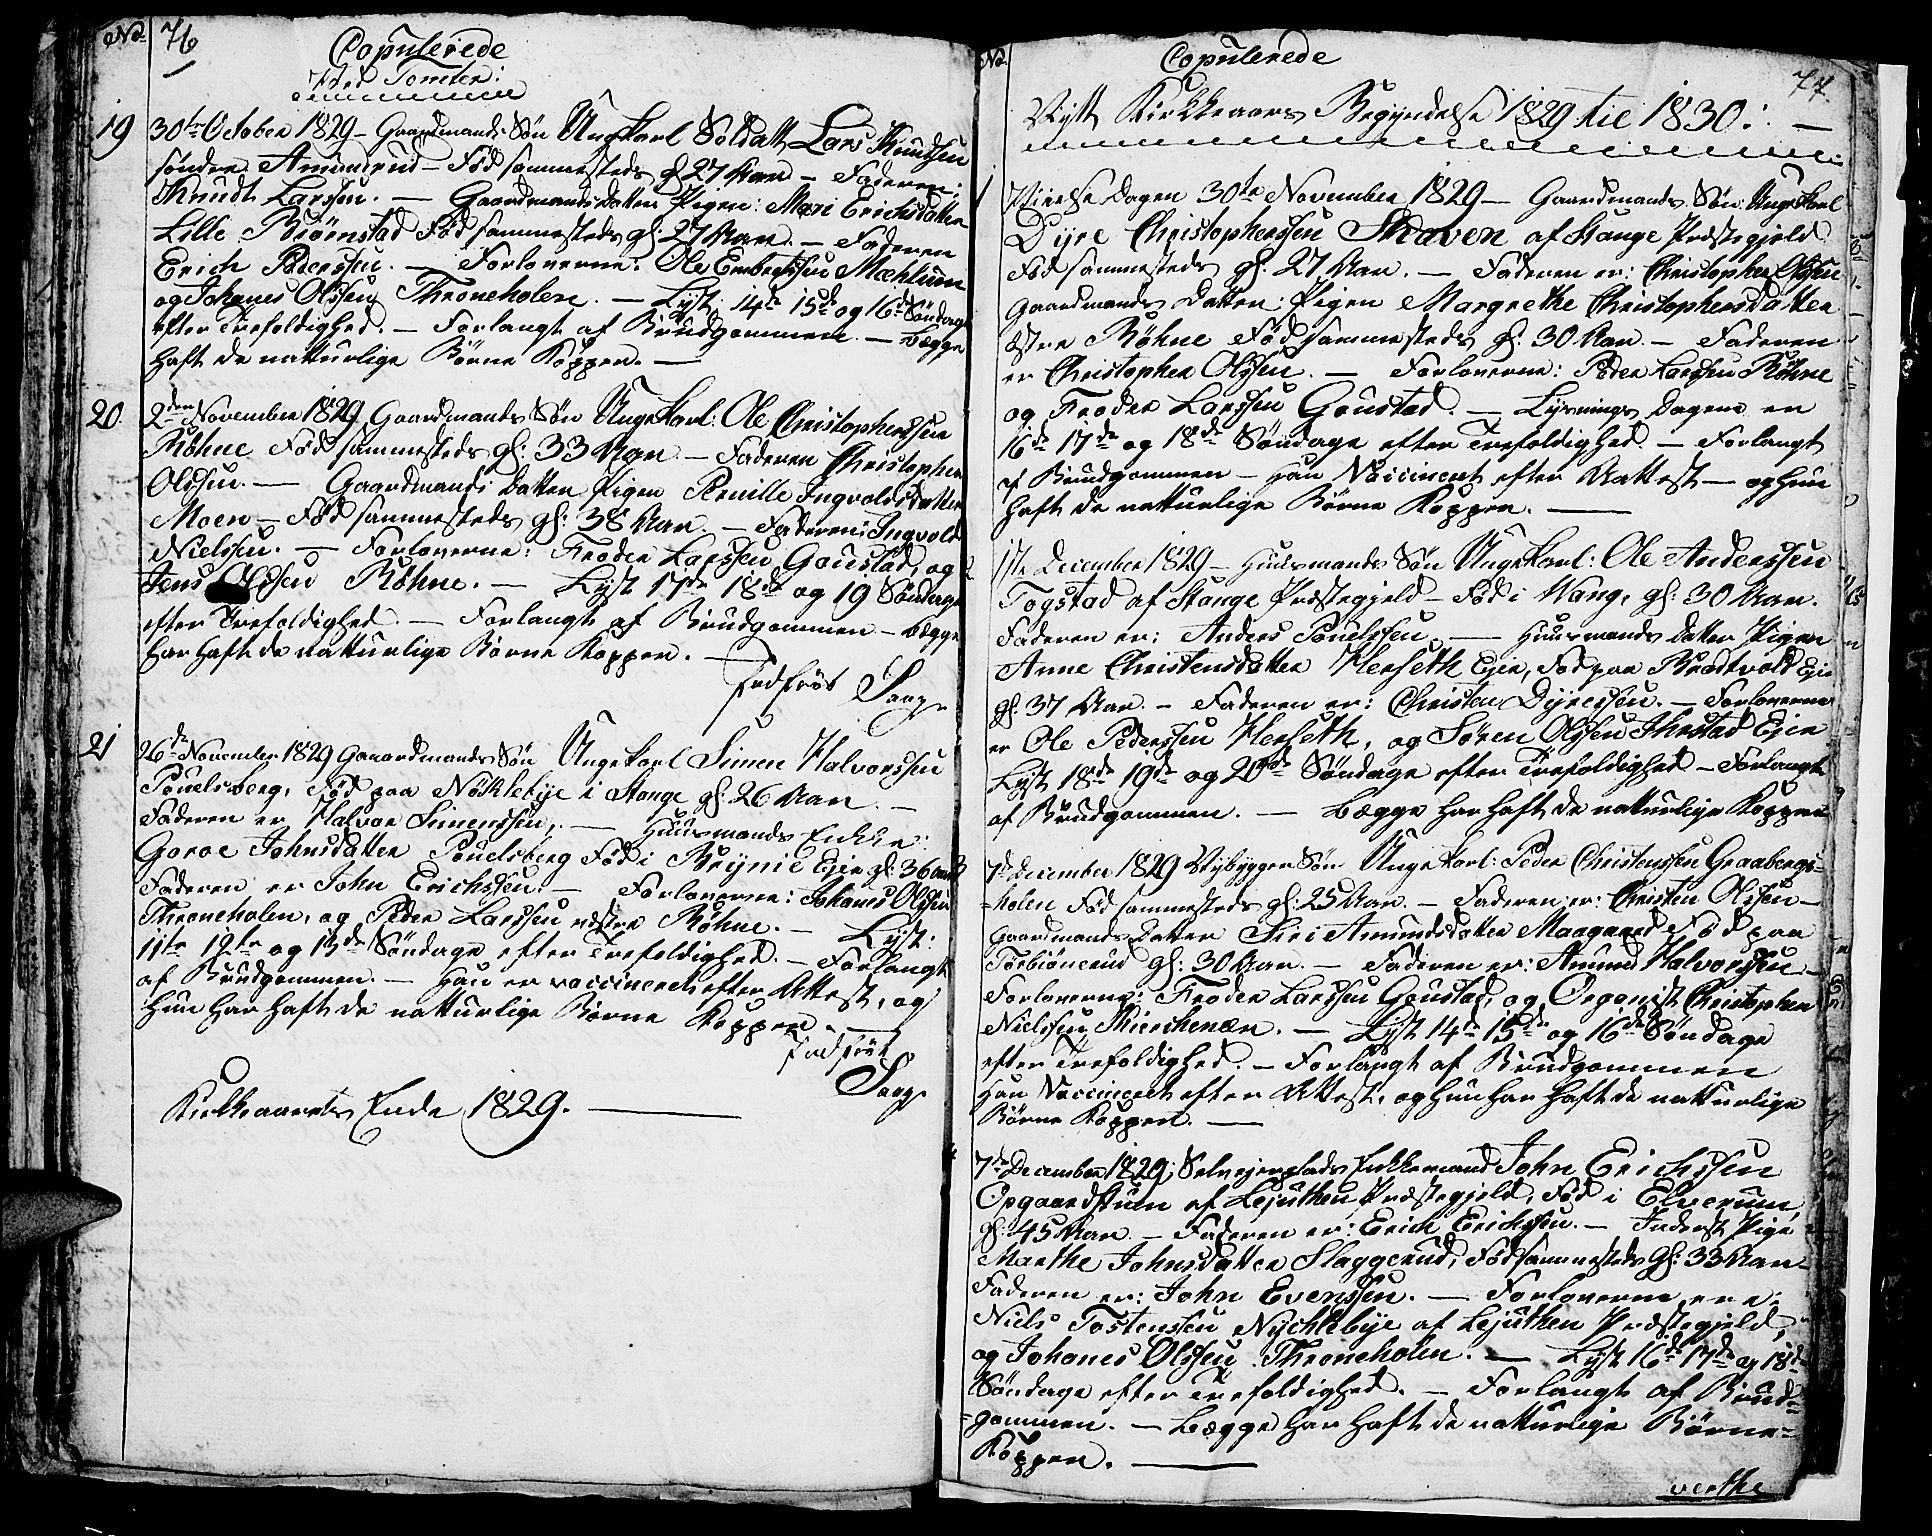 No. 76
Copulerede
Ved Tomter:
19 30te October 1829 – Gaardmands Søn Ungekarl Soldatt Lars Knudsen
søndre Amundrud – Fød sammesteds gl 27 Aar – Faderen:
Knudt Larssen. – Gaardmands Datter Pigen: Mari Erichsdatter
Lille Biørnstad Fød sammesteds gl: 27 Aar. – Faderen
Erich Pederssen. – Forloverne: Ole Embretssen Mæhlum
og Johanes Olssen Throneholen. – Lyst: 14de 15de og 16de Søndag
efter Trefoldighed. – Forlangt af Brudgommen. – Begge
haft de natturlige Børne Kopper. –
20. 2den November 1829 Gaardmands Søn Ungekarl: Ole Christopherssen
Røhne Fød sammesteds gl: 33 Aar – Faderen Christopher
Olssen. – Gaardmands Datter Pigen Pernille Ingvoldsdatter
Moen – Fød sammesteds gl: 38 Aar. – Faderen: Ingvold
Nielssen. – Forloverne: Frøder Larssen Goustad, og
Jens Olssen Røhne. – Lyst 17de 18de og 19 Søndage
efter Trefoldighed. – Forlangt af Brudgommen – begge
har haft de natturlige Børne Kopper. –
Indført
21 26de November 1829 Gaardmands Søn Ungekarl Simen Halvorssen
Pouelsberg, Fød paa Nøklebye i Stange gl: 26 Aar. –
Faderen er Halvor Simenssen, – Huusmands Enkke:
Goroe Johnsdatter Pouelsberg Fød i Brynie Eje gl: 36 Aar
Faderen er John Erichssen. – Forloverne: Johanes Olssen
Throneholen, og Peder Larssen østre Røhne. – Lyst:
11te 12te og 13de Søndage efter Trefoldighed. – Forlangt
af Brudgommen. – Han er vaccineret efter Attest, og
hun har haft de natturlige Børne Kopper. –
Indført
Kirkkeaarets Ende 1829. –
No. 77.
Copulerede
Nytt Kirkkeaars Begyndelse 1829 til 1830: –
1 Vielse Dagen 30te November 1829 – Gaardmands Søn: Ungekarl
Dyre Christopherssen Skaven af Stange Præstegjeld
Fød sammesteds gl: 27 Aar. – Faderen er: Christopher Olssen
Gaardmands Datter: Pigen Margrethe Christophersdatter
østre Røhne Fød sammesteds gl: 30 Aar. – Faderen
er Christopher Olssen. – Forloverne: Peder Larssen Røhne
og Frøder Larssen Goustad. – Lysnings Dagene er
16de 17de og 18de Søndage efter Trefoldighed – Forlangt
af Brudgommen – Han Vaccineret efter Attest – og hun
haft de natturlige Børne Kopper. –
2 1ste December 1829 – Huusmands Søn Ungekarl: Ole Anderssen
Togstad af Stange Præstegjeld – Fød i Wang, gl: 30 Aar.
Faderen er: Anders Pouelssen. – Huusmands Datter Pigen
Anne Christensdatter Herseth Ejer, Fød paa Brodtvold Eje
gl: 37 Aar. – Faderen er: Christen Dyressen. – Forloverne
er Ole Pederssen Herseth, og Søren Olssen Ihrstad Ejer
Lyst 18de 19de og 20de Søndage efter Trefoldighed – Forlangt
af Brudgommen. – Begge har haft de natturlige Kopper
3 7de December 1829 Nybygger Søn Ungekarl: Peder Christenssen Graabergs-
=holen Fød sammesteds gl: 25 Aar. – Faderen er: Christen Olssen –
Gaardmands Datter Siri Amundsdatter Maagaard Fød paa
Torbiønrud gl: 30 Aar. – Faderen er: Amund Halvorssen –
Forloverne: Frøder Larssen Goustad, og Organist Christopher
Nielssen Kierchenær. – Lyst 14de 15de og 16de Søndage
efter Trefoldighed. – Forlangt af Brudgommen
Han Vaccineret efter Attest, og hun har haft de natturlige
Børne Kopper. –
7de December 1829; Selvejerplads Enkkemand John Erichssen
Opgaardstuen af Lejuthen Præstegjeld, Fød i Elverum,
gl: 45 Aar. – Faderen er: Erich Erichssen. – Inderst Pige
Marthe Johnsdatter Slaggerud, Fød sammesteds gl: 33 Aar –
Faderen er: John Evenssen. – Forloverne ere:
Niels Tostenssen Nychlebye af Lejuthen Præstegjeld,
og Johanes Olssen Throneholen. – Lyst 16de 17de og 18de
Søndage efter Trefoldighed. – Forlangt af Brud=
=gommen. – Begge har haft de natturlige Børne=
Kopper. –
verthe